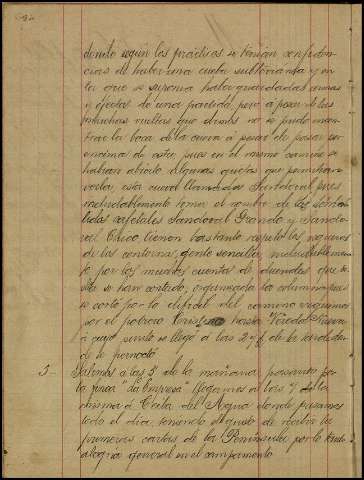 donde según los practicos se tenian confiden-
cias de haber una cueba subterranea y en
la que se suponia haber guardadas armas
y efectos de una partida, pero a pesar de las
muchas vueltas que dimos no se pudo encon-
trar la boca de la cueva a pesar de pasar por
encima de esta, pues en el mismo camino se
habian abierto algunas grietas que
esta cueva llamada Sandoval pues
indudablemente toma el nombre de los
cafetales Sandoval Grande y Sando-
val Chico, tienen bastante respeto los negros
de los contornos, gente sencilla, indudablemen-
te por los muchos cuentos de duendes que de
ella se han corrido, organizada la columna que
se cortó por lo dificil del camino seguimos
por el potrero hasta Vereda Nueva
a cuyo punto se llegó a las 2 y de la tarde don-
de se pernoctó
5 Salimos a las 5 de la mañana pasamos por
la finca "La Empresa" llegamos a las 7 de la
misma á Ceiba del Agua donde pasamos
todo el dia teniendo el gusto de recibir las
primeras cartas de la Peninsula por lo que
alegria general en el campamento